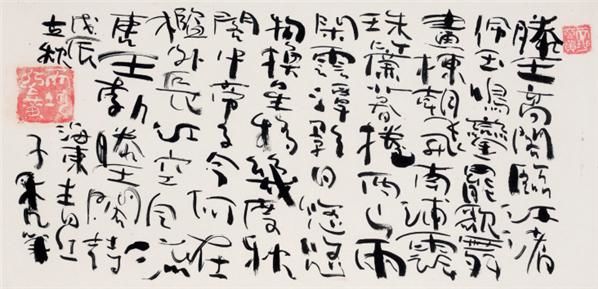 滕王高閣臨江渚
佩玉鳴鸞罷歌舞
畫棟朝飛南浦雲
珠簾暮捲西山雨
閒雲潭影日悠悠
物換星移幾度秋
閣中帝子今何在
檻外長江空自流
唐王勃滕王閣詩
戊辰
立秋
海東
子
筆